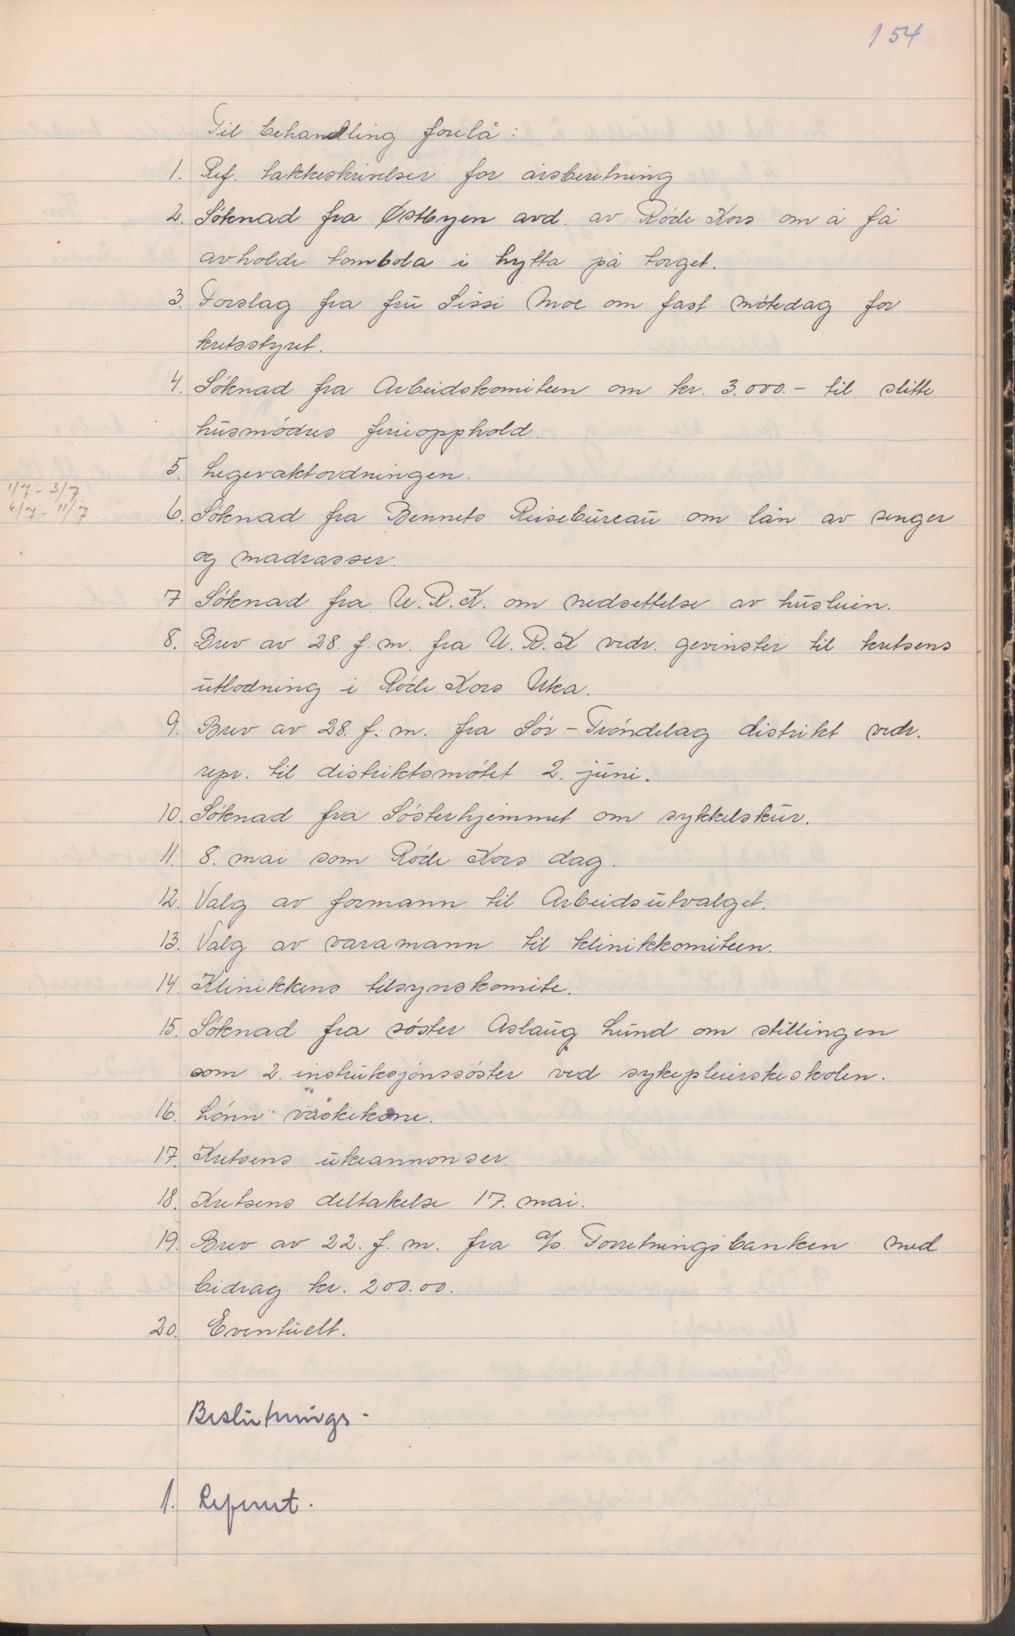 154
Til behandling forelå:
1. Ref. takkeskrivelser for årsberetning
2. Söknad fra Østbyen avd. av Röde Kors om å få
avholde tombola i hytta på torget.
3. Forslag fra fru Sissi Moe om fast mötedag for
kretsstyret.
4. Söknad fra Arbeidskomiteen om kr. 3.000.- til slitte
husmödres ferieopphold.
5. Legevaktordningen.
1/7 - 3/7
6/7 - 11/7
6. Söknad fra Bennets Reisebureau om lån av senger
og madrasser.
7 Söknad fra U.R.K. om nedsettelse av husleien.
8. Brev av 28. f.m. fra U.R.K vedr. gevinster til kretsens
utlodning i Röde Kors Uka.
9. Brev av 28. f.m. fra Sör-Tröndelag distrikt vedr.
repr. til distriktsmötet 2. juni.
10. Söknad fra Sösterhjemmet om sykkelskur.
11. 8. mai som Röde Kors dag.
12. Valg av formann til Arbeidsutvalget.
13. Valg av varamann til klinikkomiteen.
14. Klinikkens tilsynskomite.
15. Söknad fra söster Aslaug Lund om stillingen
som 2. instruksjonssöster ved sykepleierskeskolen.
16. Lönn vaskekone.
17. Kretsens ukeannonser.
18. Kretsens deltakelse 17. mai.
19. Brev av 22. f.m. fra a/s. Forretningsbanken med
bidrag kr. 200.00.
20. Eventuelt.
Beslutnings-
1. Referert.